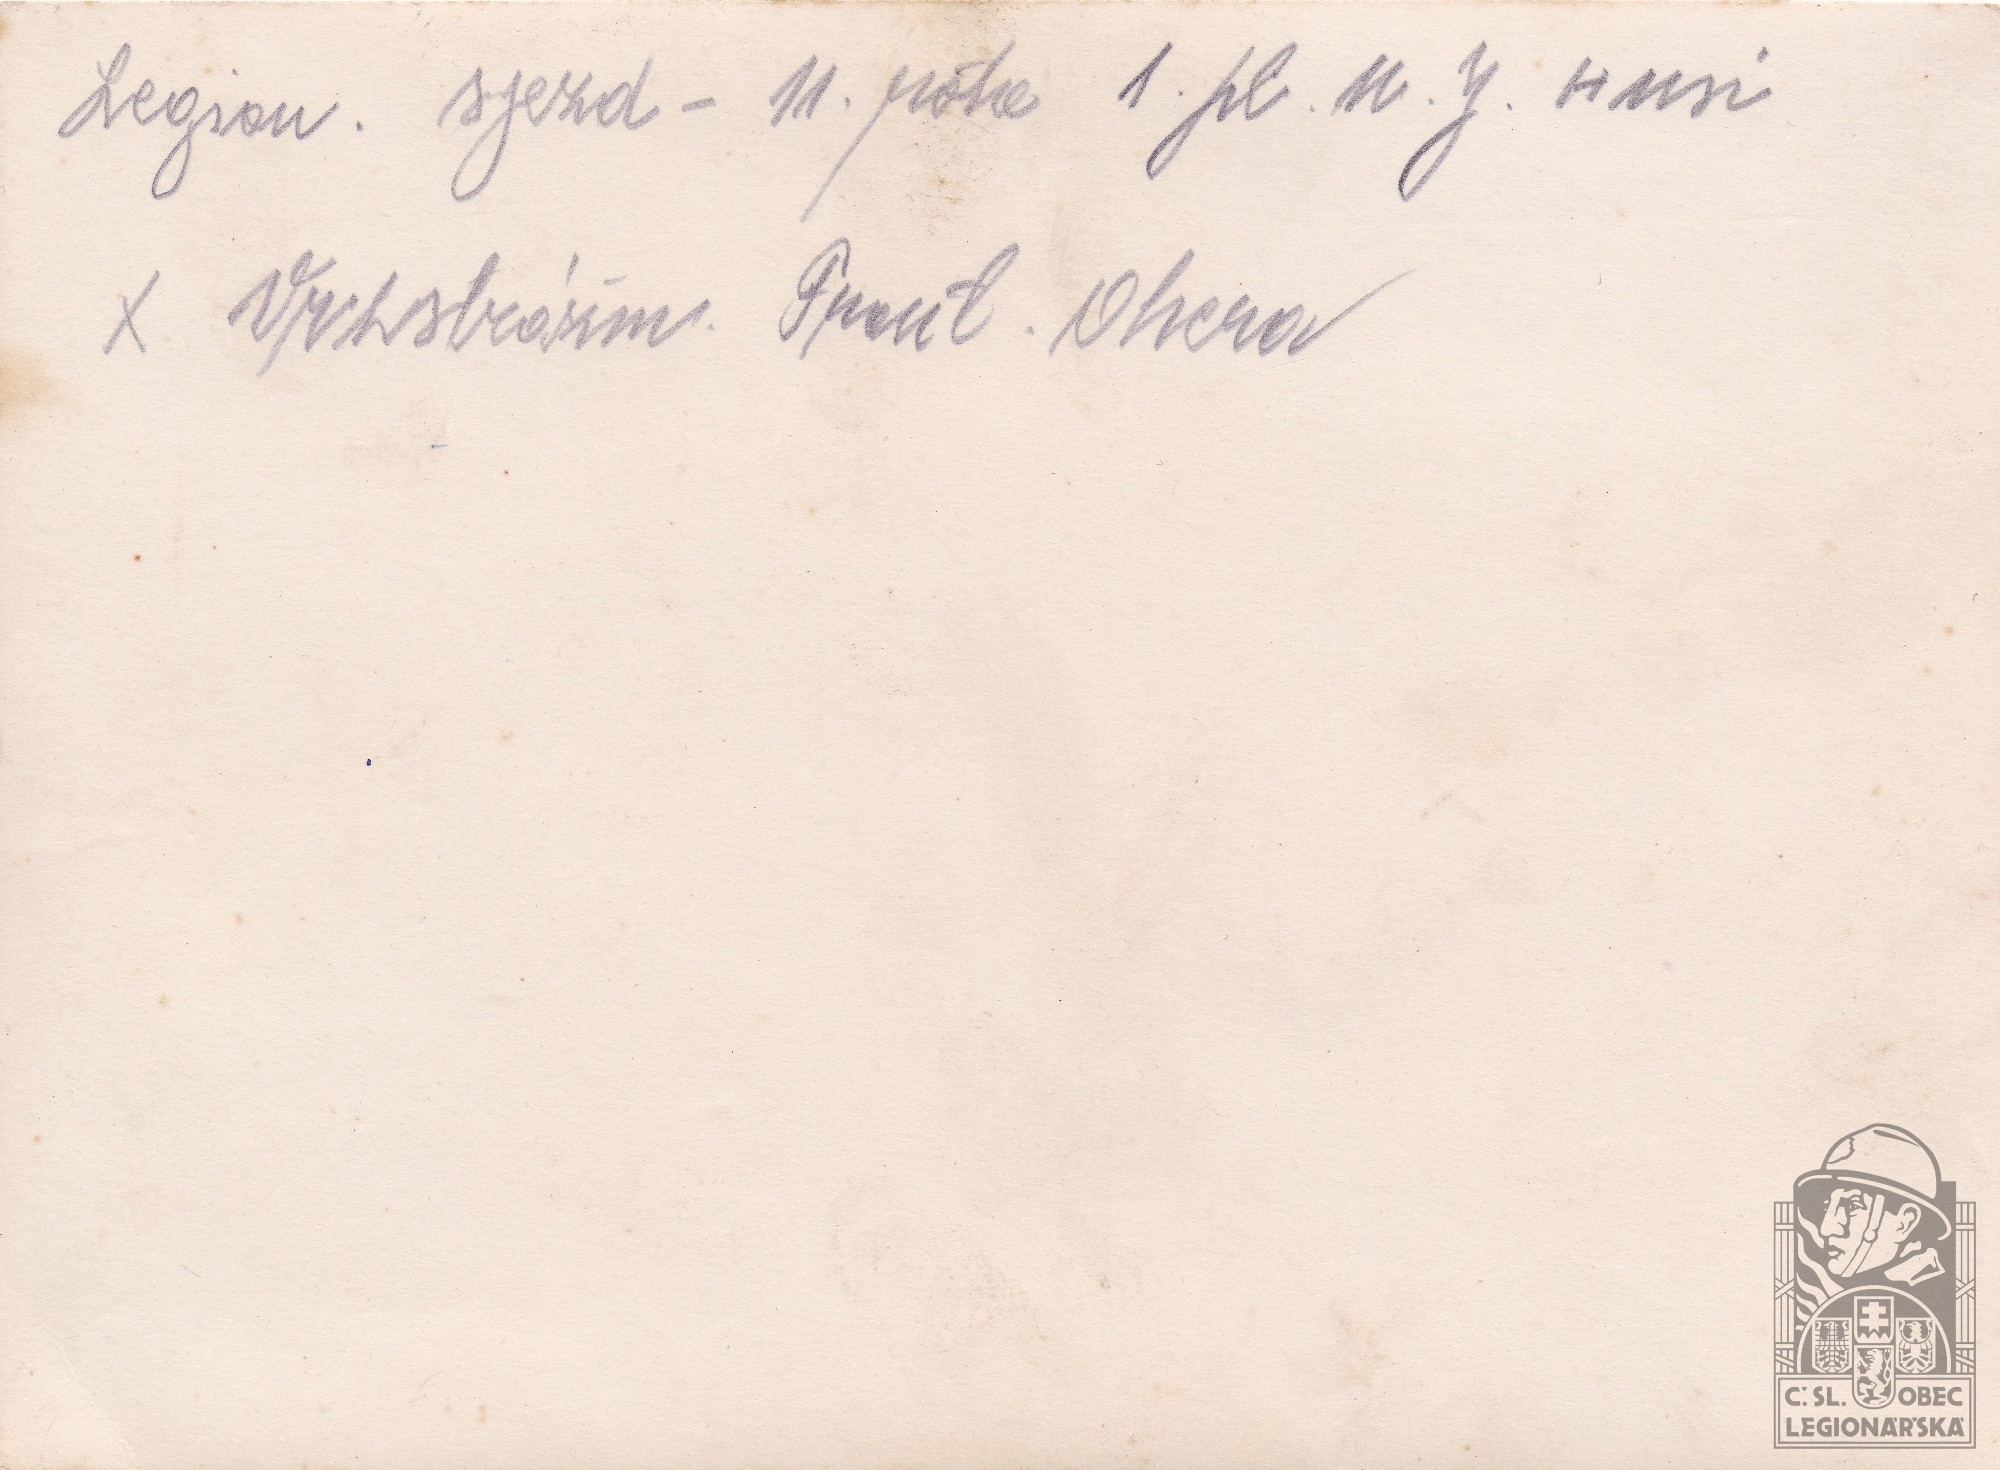 Legion. sjezd - 11. róta 1. pl. M. J. Husi
x Vrchstrážm. Frant. Ohera
Č. SL. OBEC
LEGIONÁŘSKÁ